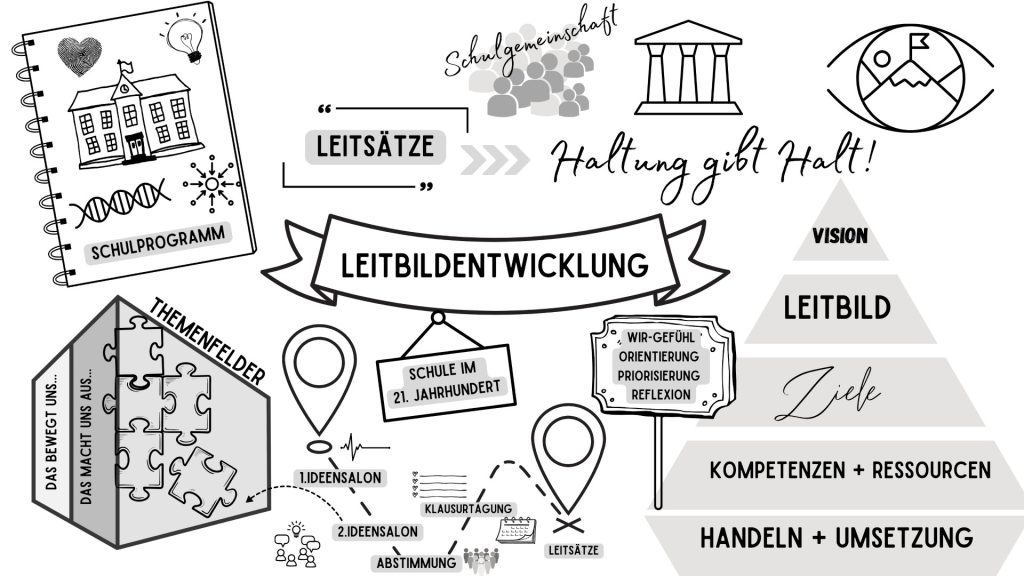 SCHULPROGRAMM
Schulgemeinschaft
“
LEITSÄTZE
”
Haltung gibt Halt!
LEITBILDENTWICKLUNG
SCHULE IM
21. JAHRHUNDERT
WIR-GEFÜHL
ORIENTIERUNG
PRIORISIERUNG
REFLEXION
VISION
LEITBILD
Ziele
KOMPETENZEN + RESSOURCEN
HANDELN + UMSETZUNG
THEMENFELDER
DAS BEWEGT UNS...
DAS MACHT UNS AUS...
1.IDEENSALON
2.IDEENSALON
ABSTIMMUNG
KLAUSURTAGUNG
LEITSÄTZE